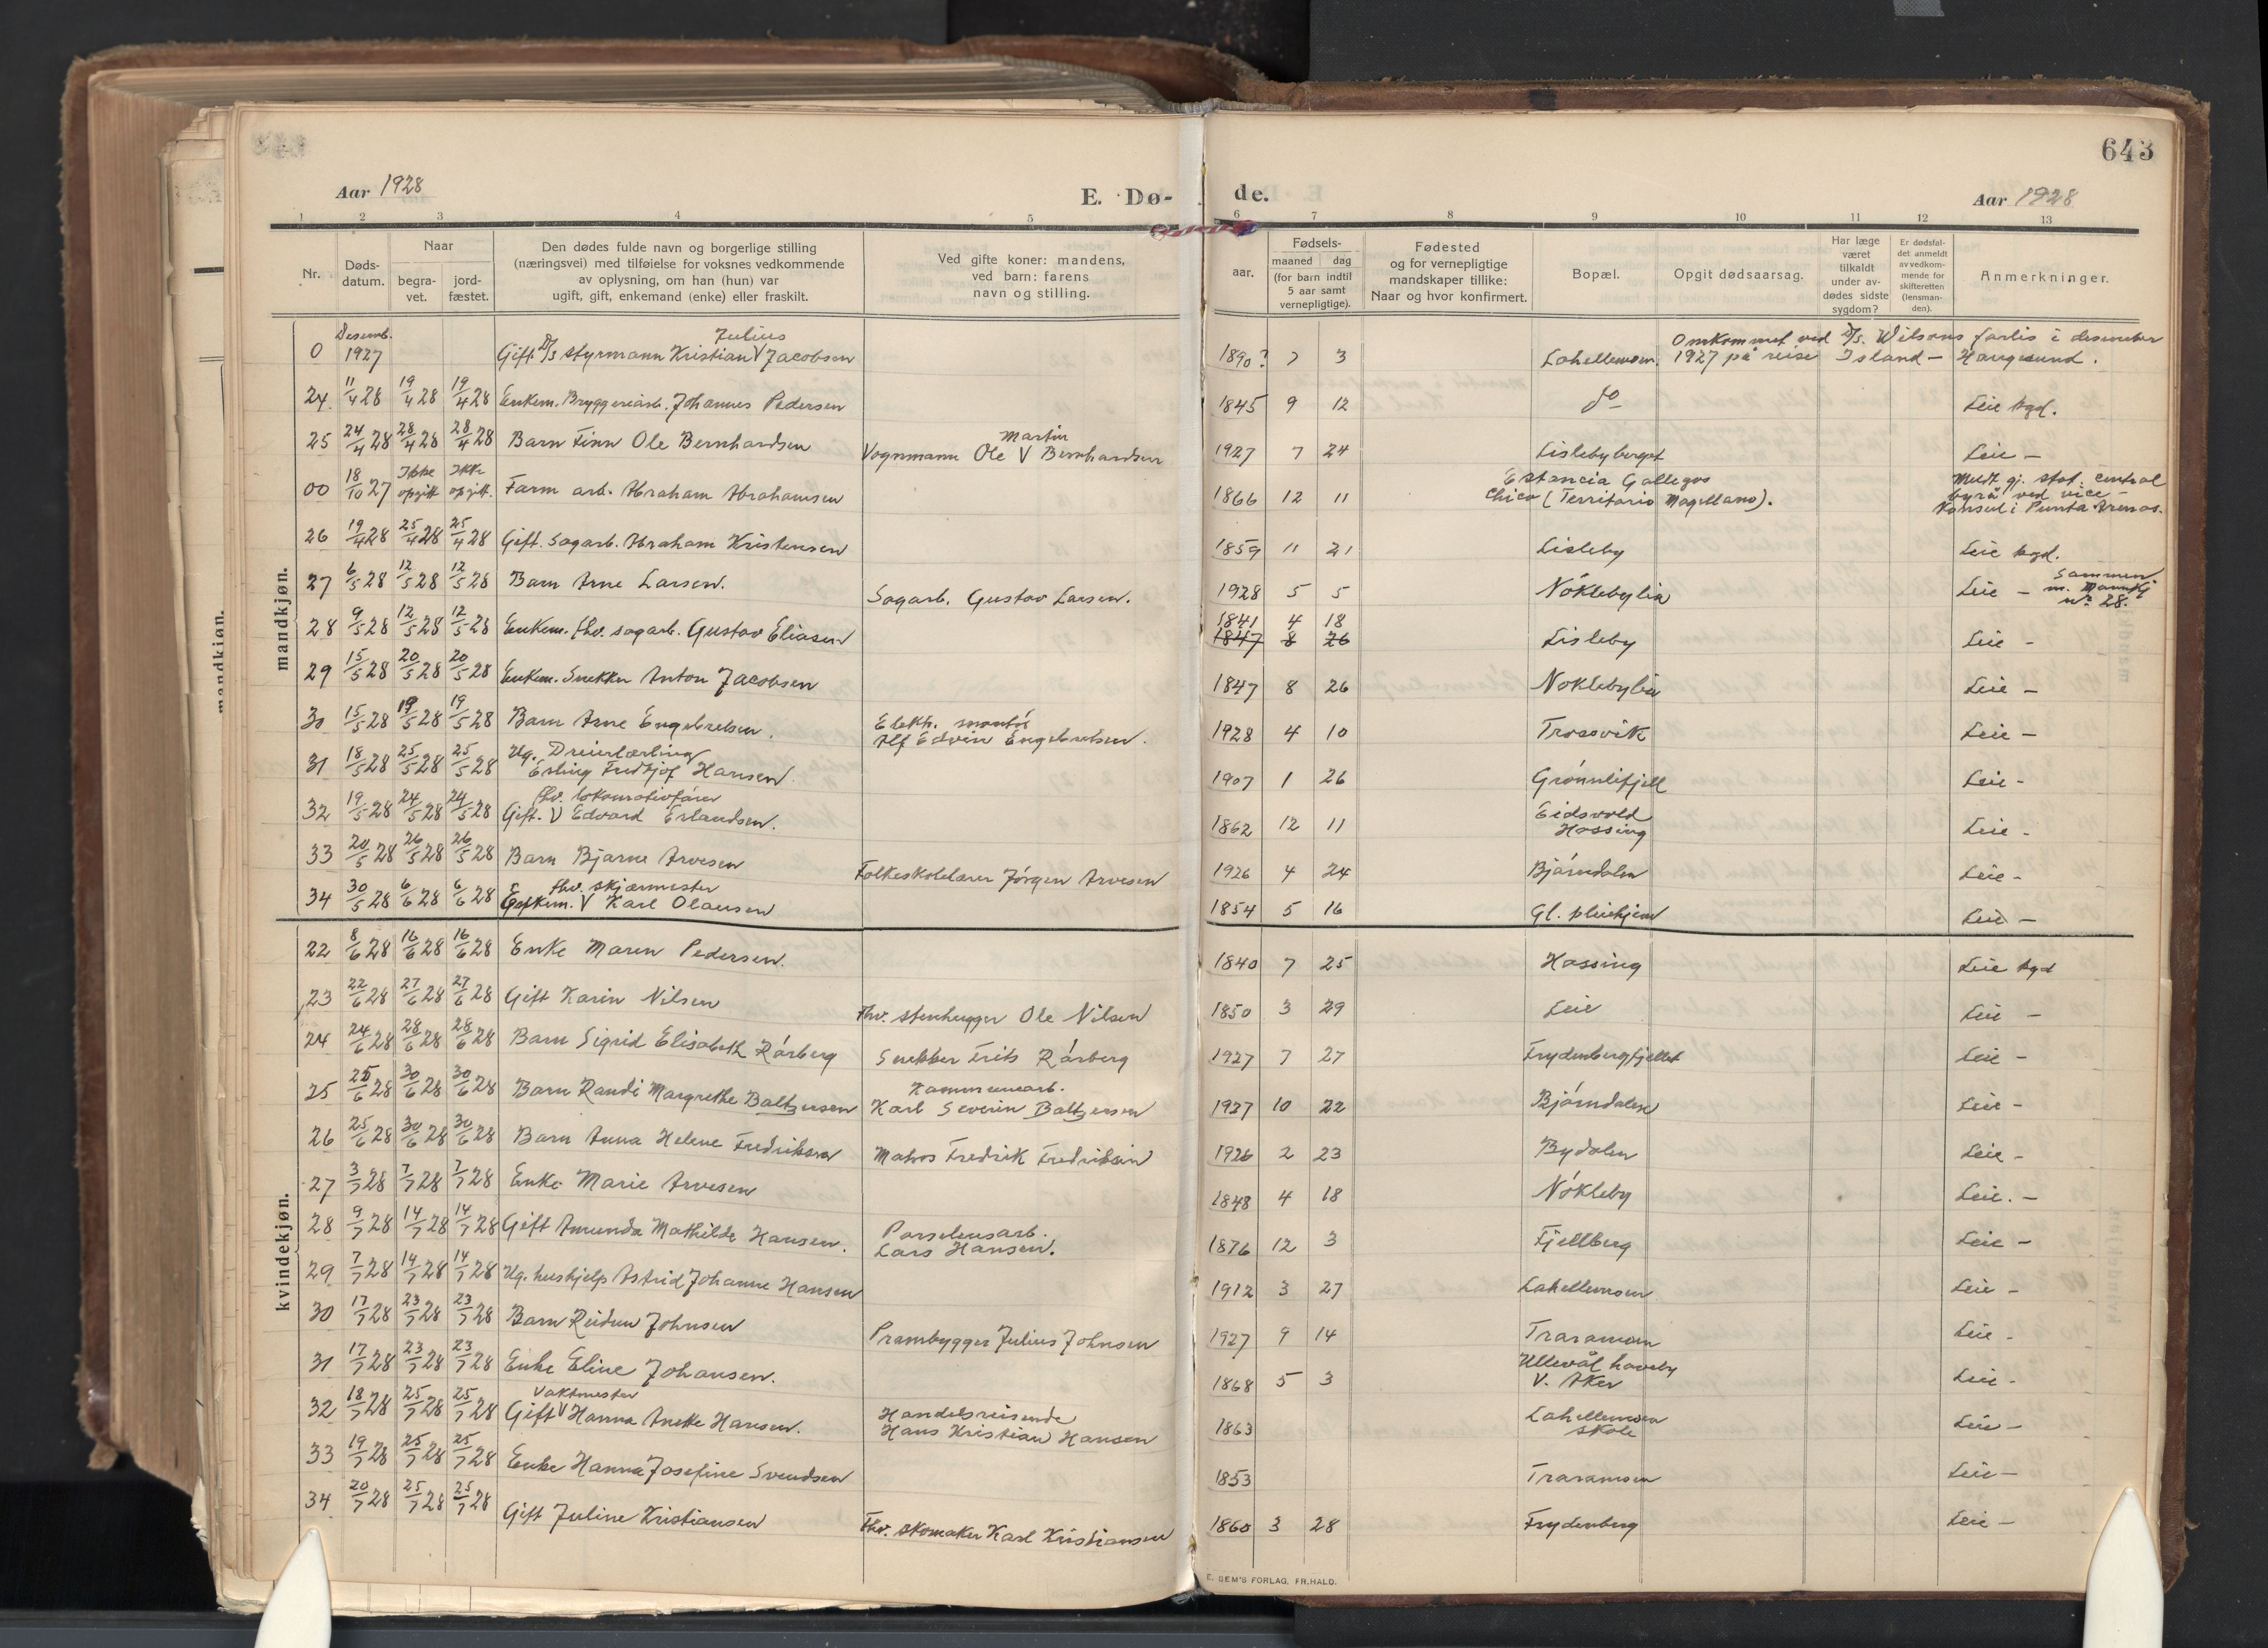 643
Aar 1928
E. Dø-
de.
Aar 1928
1 2 3 4 5 6 7 8 9 10 11 12 13
Nr.
Døds-
datum.
Naar
begra-
vet.
jord-
fæstet.
Den dødes fulde navn og borgerlige stilling
(næringsvei) med tilføielse for voksnes vedkommende
av oplysning, om han (hun) var
ugift, gift, enkemand (enke) eller fraskilt.
Ved gifte koner: mandens,
ved barn: farens
navn og stilling.
Fødsels-
aar.
maaned dag
(for barn indtil
5 aar samt
vernepligtige).
Fødested
og for vernepligtige
mandskaper tillike:
Naar og hvor konfirmert.
Bopæl.
Opgit dødsaarsag.
Har læge
været
tilkaldt
under av-
dødes sidste
sygdom?
Er dødsfal-
det anmeldt
av vedkom-
mende for
skifteretten
(lensman-
den).
Anmerkninger.
mandkjøn.
Desemb. Julius Omkommet ved D/S. Wilsons forlis i desember
0 1927 Gift D/S styrmann Kristian V Jacobsen 1890? 7 3 Lahellemoen. 1927 på reise Island - Haugesund.
24. 11/4 28 19/4 28 19/4 28 Enkem. Bryggeriarb. Johannes Pedersen 1845 9 12 do Leie kgd.
Martin
25 24/4 28 28/4 28 28/4 28 Barn Finn Ole Bernhardsen Vognmann Ole V Bernhardsen 1927 7 24 Lislebyberget Leie -
Ikke Ikke Estancia Gallegos Meldt gj. stat. central
00 18/10 27 opgitt opgitt. Farm arb. Abraham Abrahamsen 1866 12 11 Chico (Territorio Magellano). byrå ved vice-
konsul i Punta Arenas.
26 19/4 28 25/4 28 25/4 28 Gift. Sagarb. Abraham Kristensen 1859 11 21 Lisleby Leie kgd.
27 6/5 28 12/5 28 12/5 28 Barn Arne Larsen. Sagarb. Gustav Larsen. 1928 5 5 Nøklebylia Leie - Sammen
m. Mannkj
nr. 28.
1841 4 18
28 9/5 28 12/5 28 12/5 28 Enkem. fhv. sagarb. Gustav Eliasen 1847 8 26 Lisleby Leie -
29 15/5 28 20/5 28 20/5 28 Enkem. Snekker Anton Jacobsen 1847 8 26 Nøklebylia Leie -
Elektr. montør
30 15/5 28 19/5 28 19/5 28 Barn Arne Engebretsen. Alf Edvin Engebretsen. 1928 4 10 Trosvik Leie -
Ug. Dreierlærling
31 18/5 28 25/5 28 25/5 28 Erling Fredtjof Hansen. 1907 1 26 Grønnlifjell Leie -
fhv. lokomotivfører Eidsvold
32 19/5 28 24/5 28 24/5 28 Gift. V Edvard Erlandsen. 1862 12 11 Hassing Leie -
33 20/5 28 26/5 28 26/5 28 Barn Bjarne Arvesen Folkeskolelærer Jørgen Arvesen 1926 4 24 Bjørndalen Leie -
fhv. skjærmester
34 30/5 28 6/6 28 6/6 28 Enkem. V Karl Olausen 1854 5 16 Gl. pleiehjem Leie -
kvindekjøn.
22 8/6 28 16/6 28 16/6 28 Enke Maren Pedersen. 1840 7 25 Hassing Leie kgd
23 22/6 28 27/6 28 27/6 28 Gift Karin Nilsen Fhv. stenhugger Ole Nilsen 1850 3 29 Leie Leie -
24 24/6 28 28/6 28 28/6 28 Barn Sigrid Elisabeth Rørberg Snekker Frits Rørberg 1927 7 27 Frydenbergfjellet Leie -
Kommunearb.
25 25/6 28 30/6 28 30/6 28 Barn Randi Margrethe Baltzersen Karl Severin Baltzersen 1927 10 22 Bjørndalen Leie -
26 25/6 28 30/6 28 30/6 28 Barn Anna Helene Fredriksen Matros Fredrik Fredriksen 1926 2 23 Bydalen Leie -
27 3/7 28 7/7 28 7/7 28 Enke Marie Arvesen 1848 4 18 Nøkleby Leie. -
Porselensarb.
28 9/7 28 14/7 28 14/7 28 Gift Amunda Mathilde Hansen. Lars Hansen. 1876 12 3 Fjellberg Leie -
29 7/7 28 14/7 28 14/7 28 Ug. hushjelp Astrid Johanne Hansen 1912 3 27 Lahellemoen Leie -
30 17/7 28 23/7 28 23/7 28 Barn Reidun Johnsen Prambygger Julius Johnsen 1927 9 14 Traramoen Leie -
Ullevål haveby
31 17/7 28 23/7 28 23/7 28 Enke Eline Johansen. 1868 5 3 V. Aker Leie -
Vaktmester Handelsreisende Lahellemoen
32 18/7 28 25/7 28 25/7 28 Gift V Hanna Anette Hansen. Hans Kristian Hansen 1863 skole Leie -
33 19/7 28 25/7 28 25/7 28 Enke Hanna Josefine Svendsen 1853 Traramoen Leie -
34 20/7 28 25/7 28 25/7 28 Gift Juline Kristiansen Fhv. skomaker Karl Kristiansen 1860 3 28 Frydenberg Leie -
E. SEM'S FORLAG, FR.HALD.
mandkjøn.